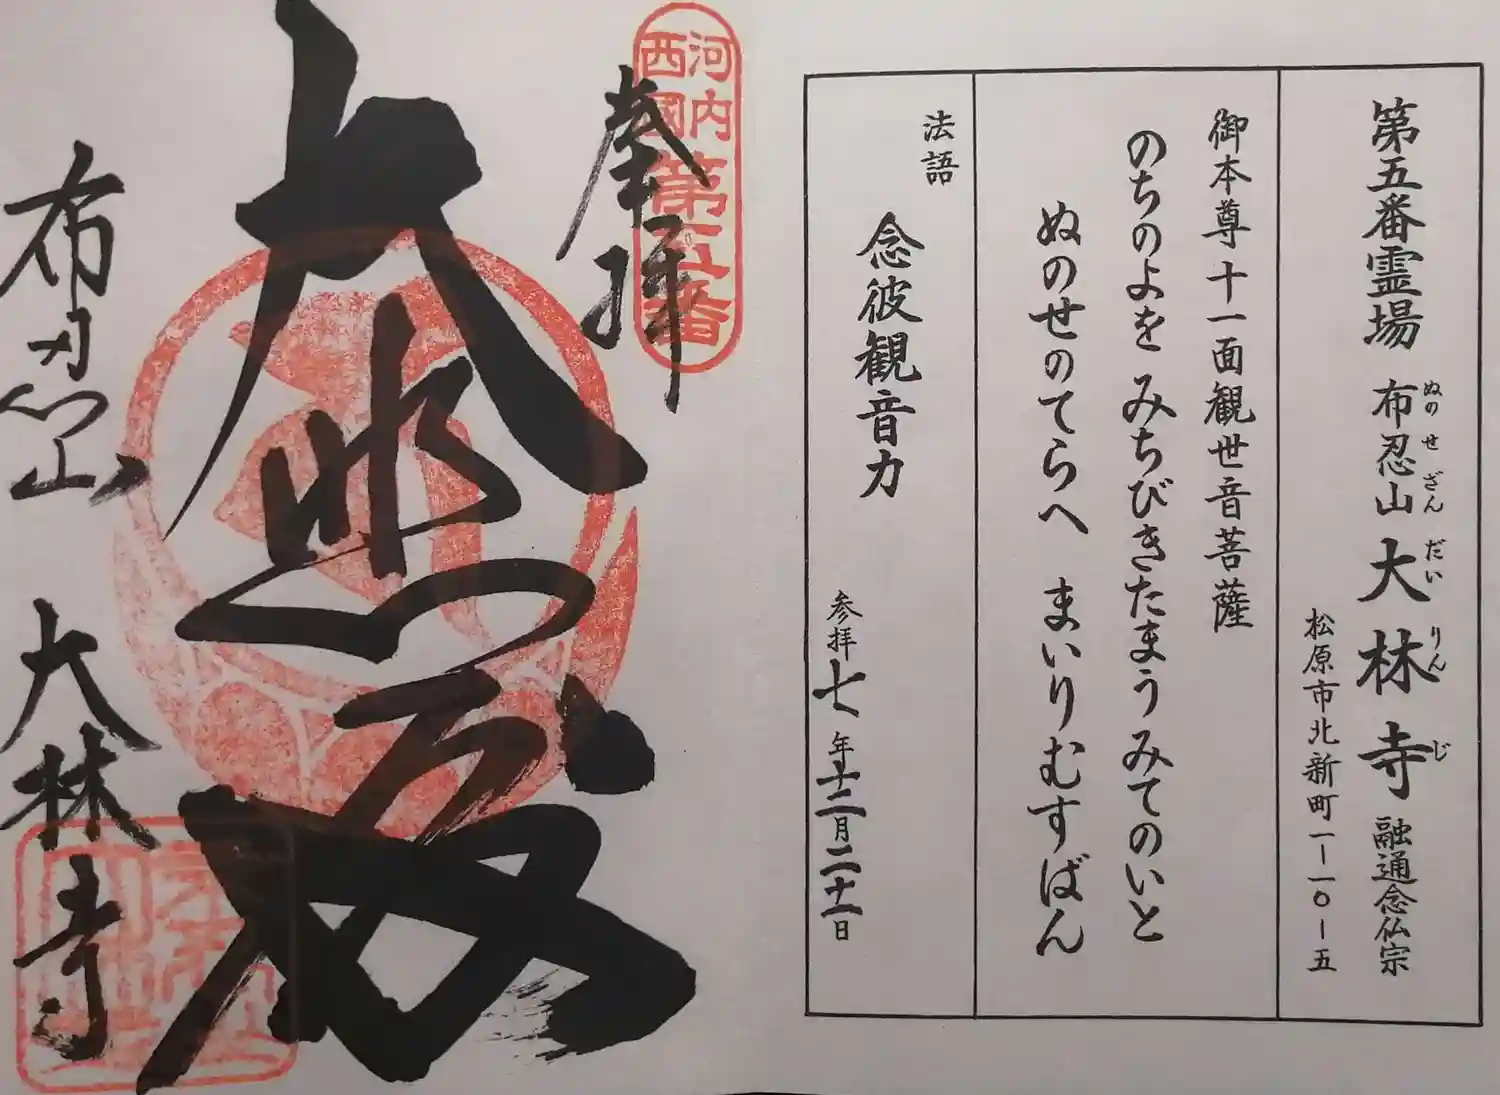 第五番霊場 布忍山 大林寺 融通念仏宗
ぬのせざん だいりんじ
松原市北新町一ー一〇ー五
御本尊 十一面観世音菩薩
のちのよを みちびきたまうみてのいと
ぬのせのてらへ まいりむすばん
法語
念彼観音力
参拝七年十二月二十一日
河内
西國
第五番
奉拝
大悲殿
布忍山 大林寺